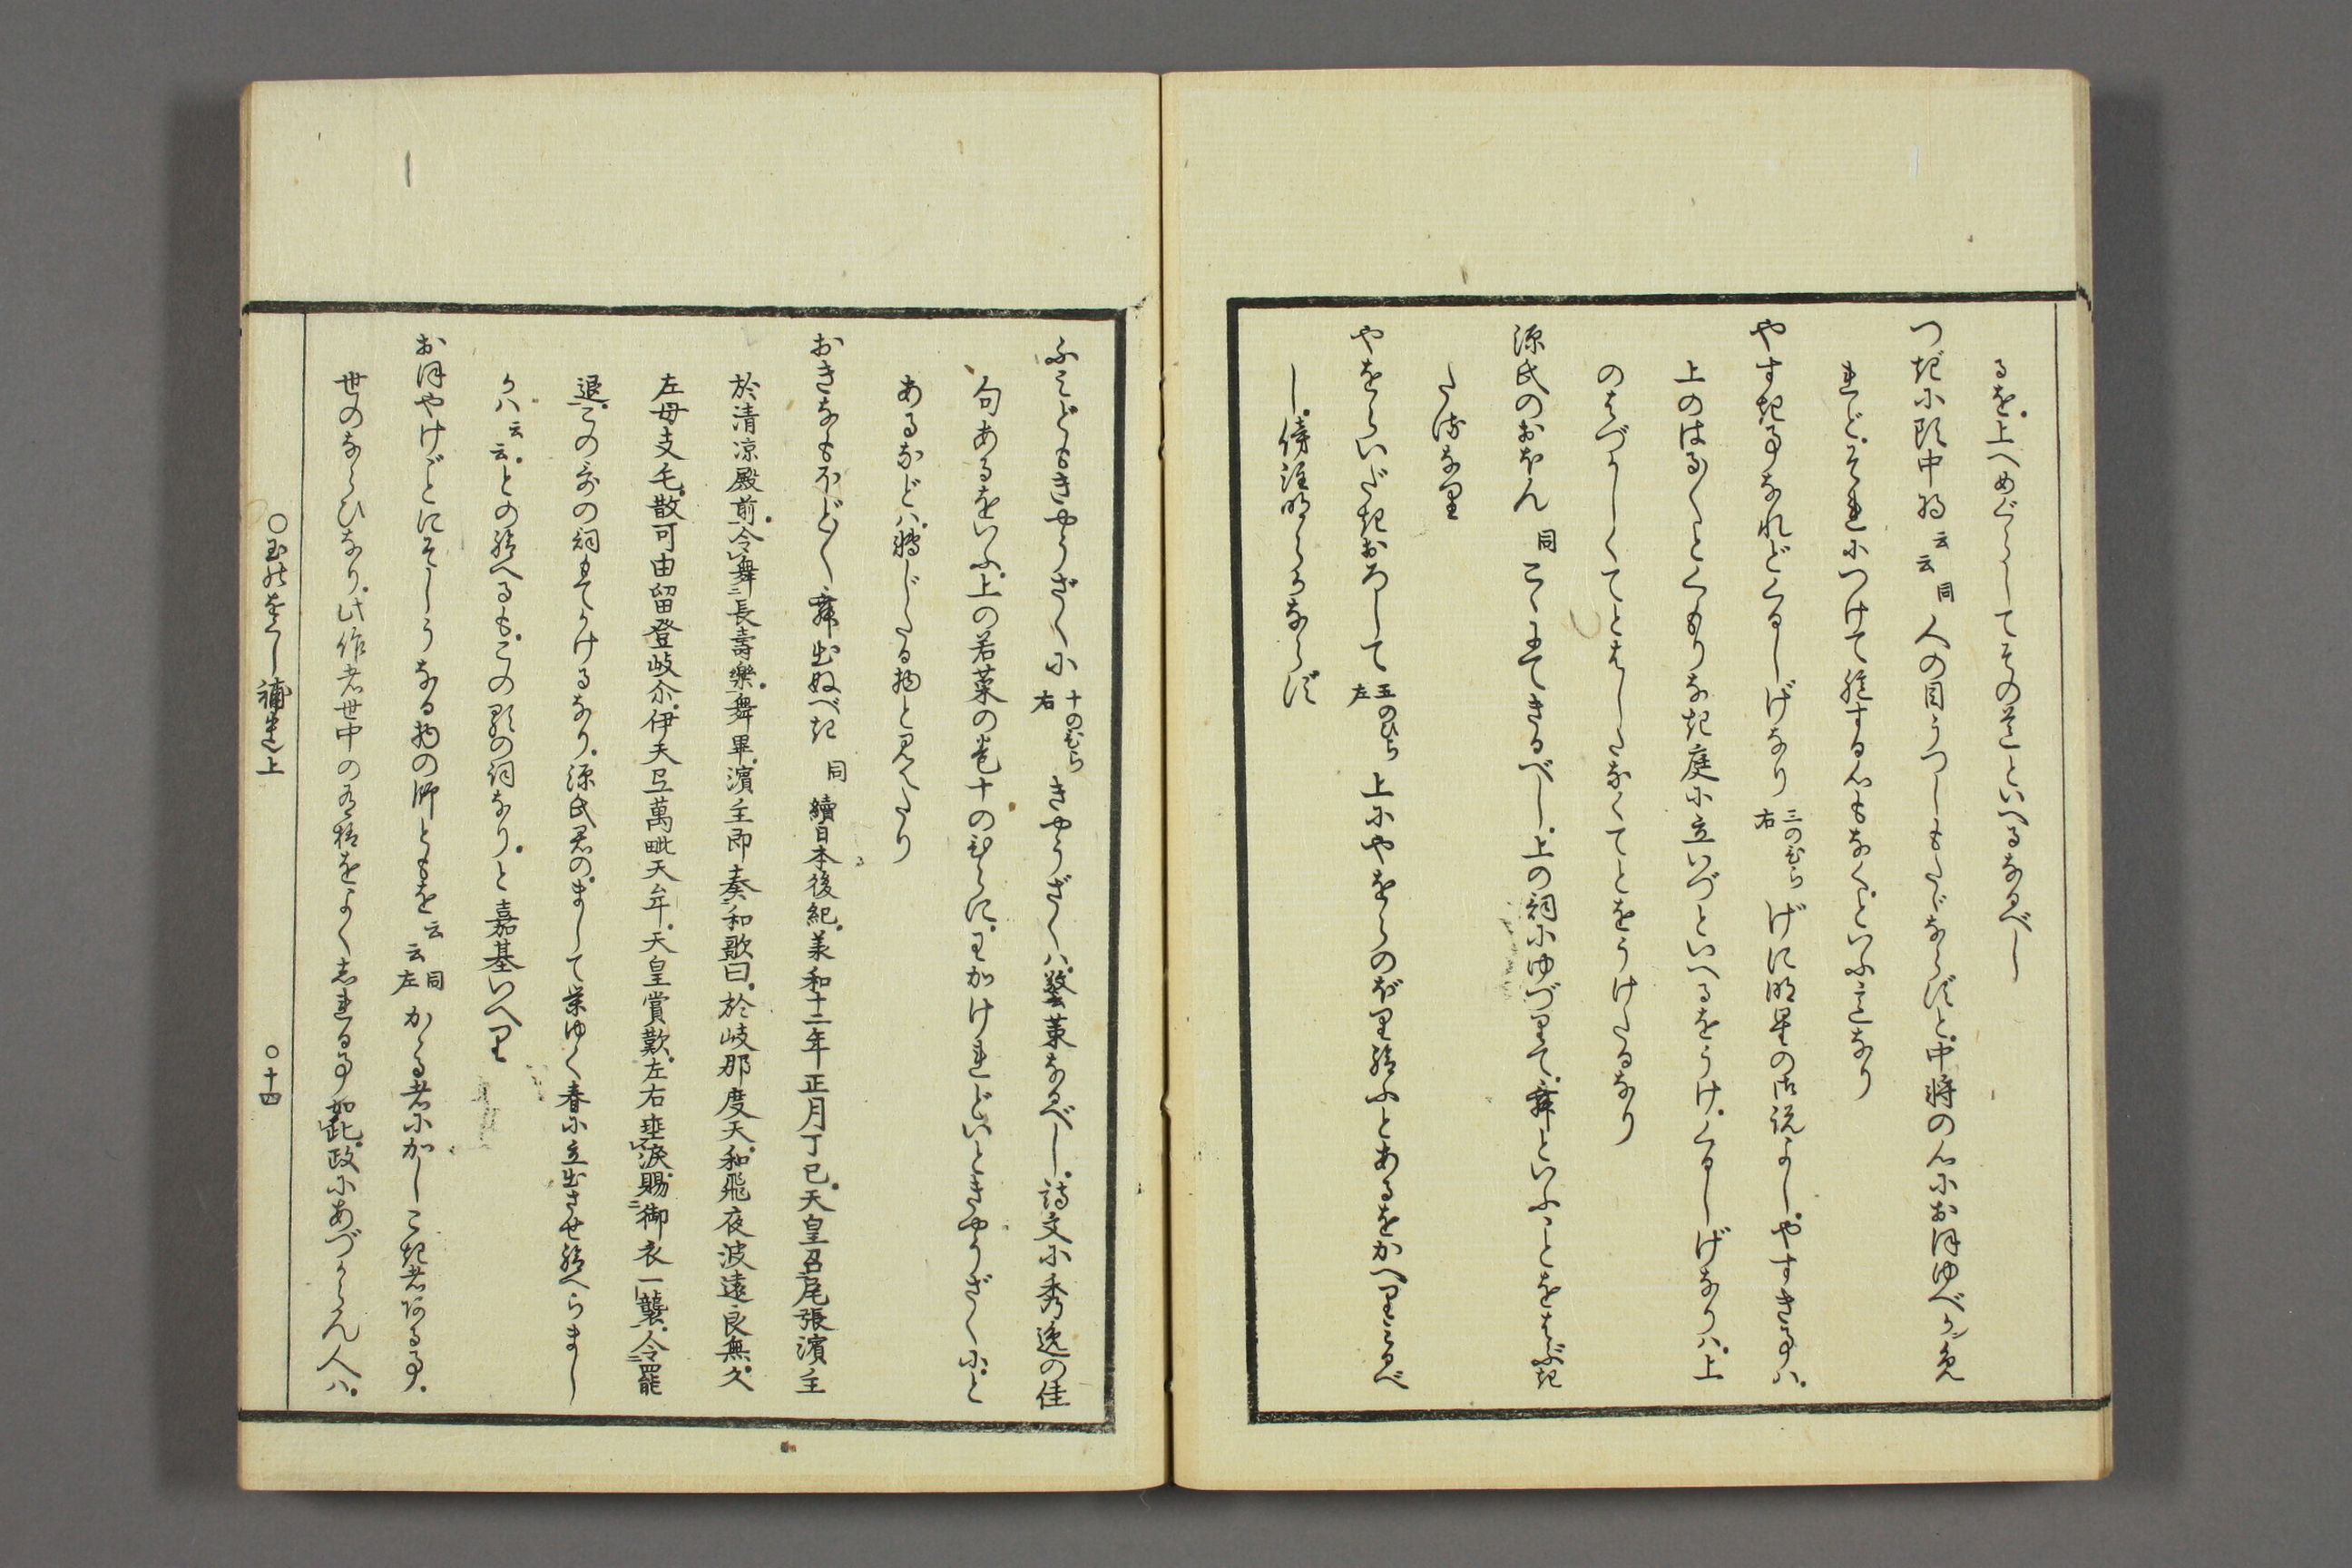 るを。上へめぐらしてその道といへるなるべし
つぎに頭中将 云云 同 人の目うつしもたゞならずと。中将の心におぼゆべかめ
れど。それにつけて臆する心もなく。といふ意なり
やすき事なれどくるしげなり 三のひら右 げに明星の御説よし。やすき事ハ。
上のはる〴〵とくもりなき庭に立いづといへるをうけ。くるしげなりハ。上
のはづかしくてとはしたなくてとをうけたるなり
源氏のおほん 同 こゝにてきるべし。上の詞にゆづりて。舞といふことをはぶき
たるなり
やをらいだきおろして 五のひら左 上にやをらのぼり給ふとあるをかへりみるべ
し。傍註明らかならず
ふみどもきやうざくに 十のひら右 きやうざくハ。警策なるべし。詩文に秀逸の佳
句あるをいふ。上の若菜の巻十のひらに。わかけれどいときやうざくに。と
あるなどハ。轉じたる物と見えたり
おきなもほど〳〵舞出ぬべき 同 續日本後紀。承和十二年正月丁巳。天皇召尾張濱主
於清凉殿前。令舞長壽樂。舞畢。濱主即奏和歌曰。於岐那度天。和飛夜波遠良無。久
左母支毛。散可由留登岐尓。伊天弖萬毗天牟。天皇賞歎。左右垂淚。賜御衣一襲。令罷
退。この哥の詞もてかけるなり。源氏君の。まして榮ゆく春に立出させ給へらまし
かハ云云。との給へるも。この歌の詞なり。と嘉基いへり
おほやけごとにそしうなる物の師ともを 云云 同左 かゝる者にかしこき者ある事。
世のならひなり。此作者世中の有様をよく志れる事如此。政にあづからん人ハ。
○玉のをくし補遺上 ○十四